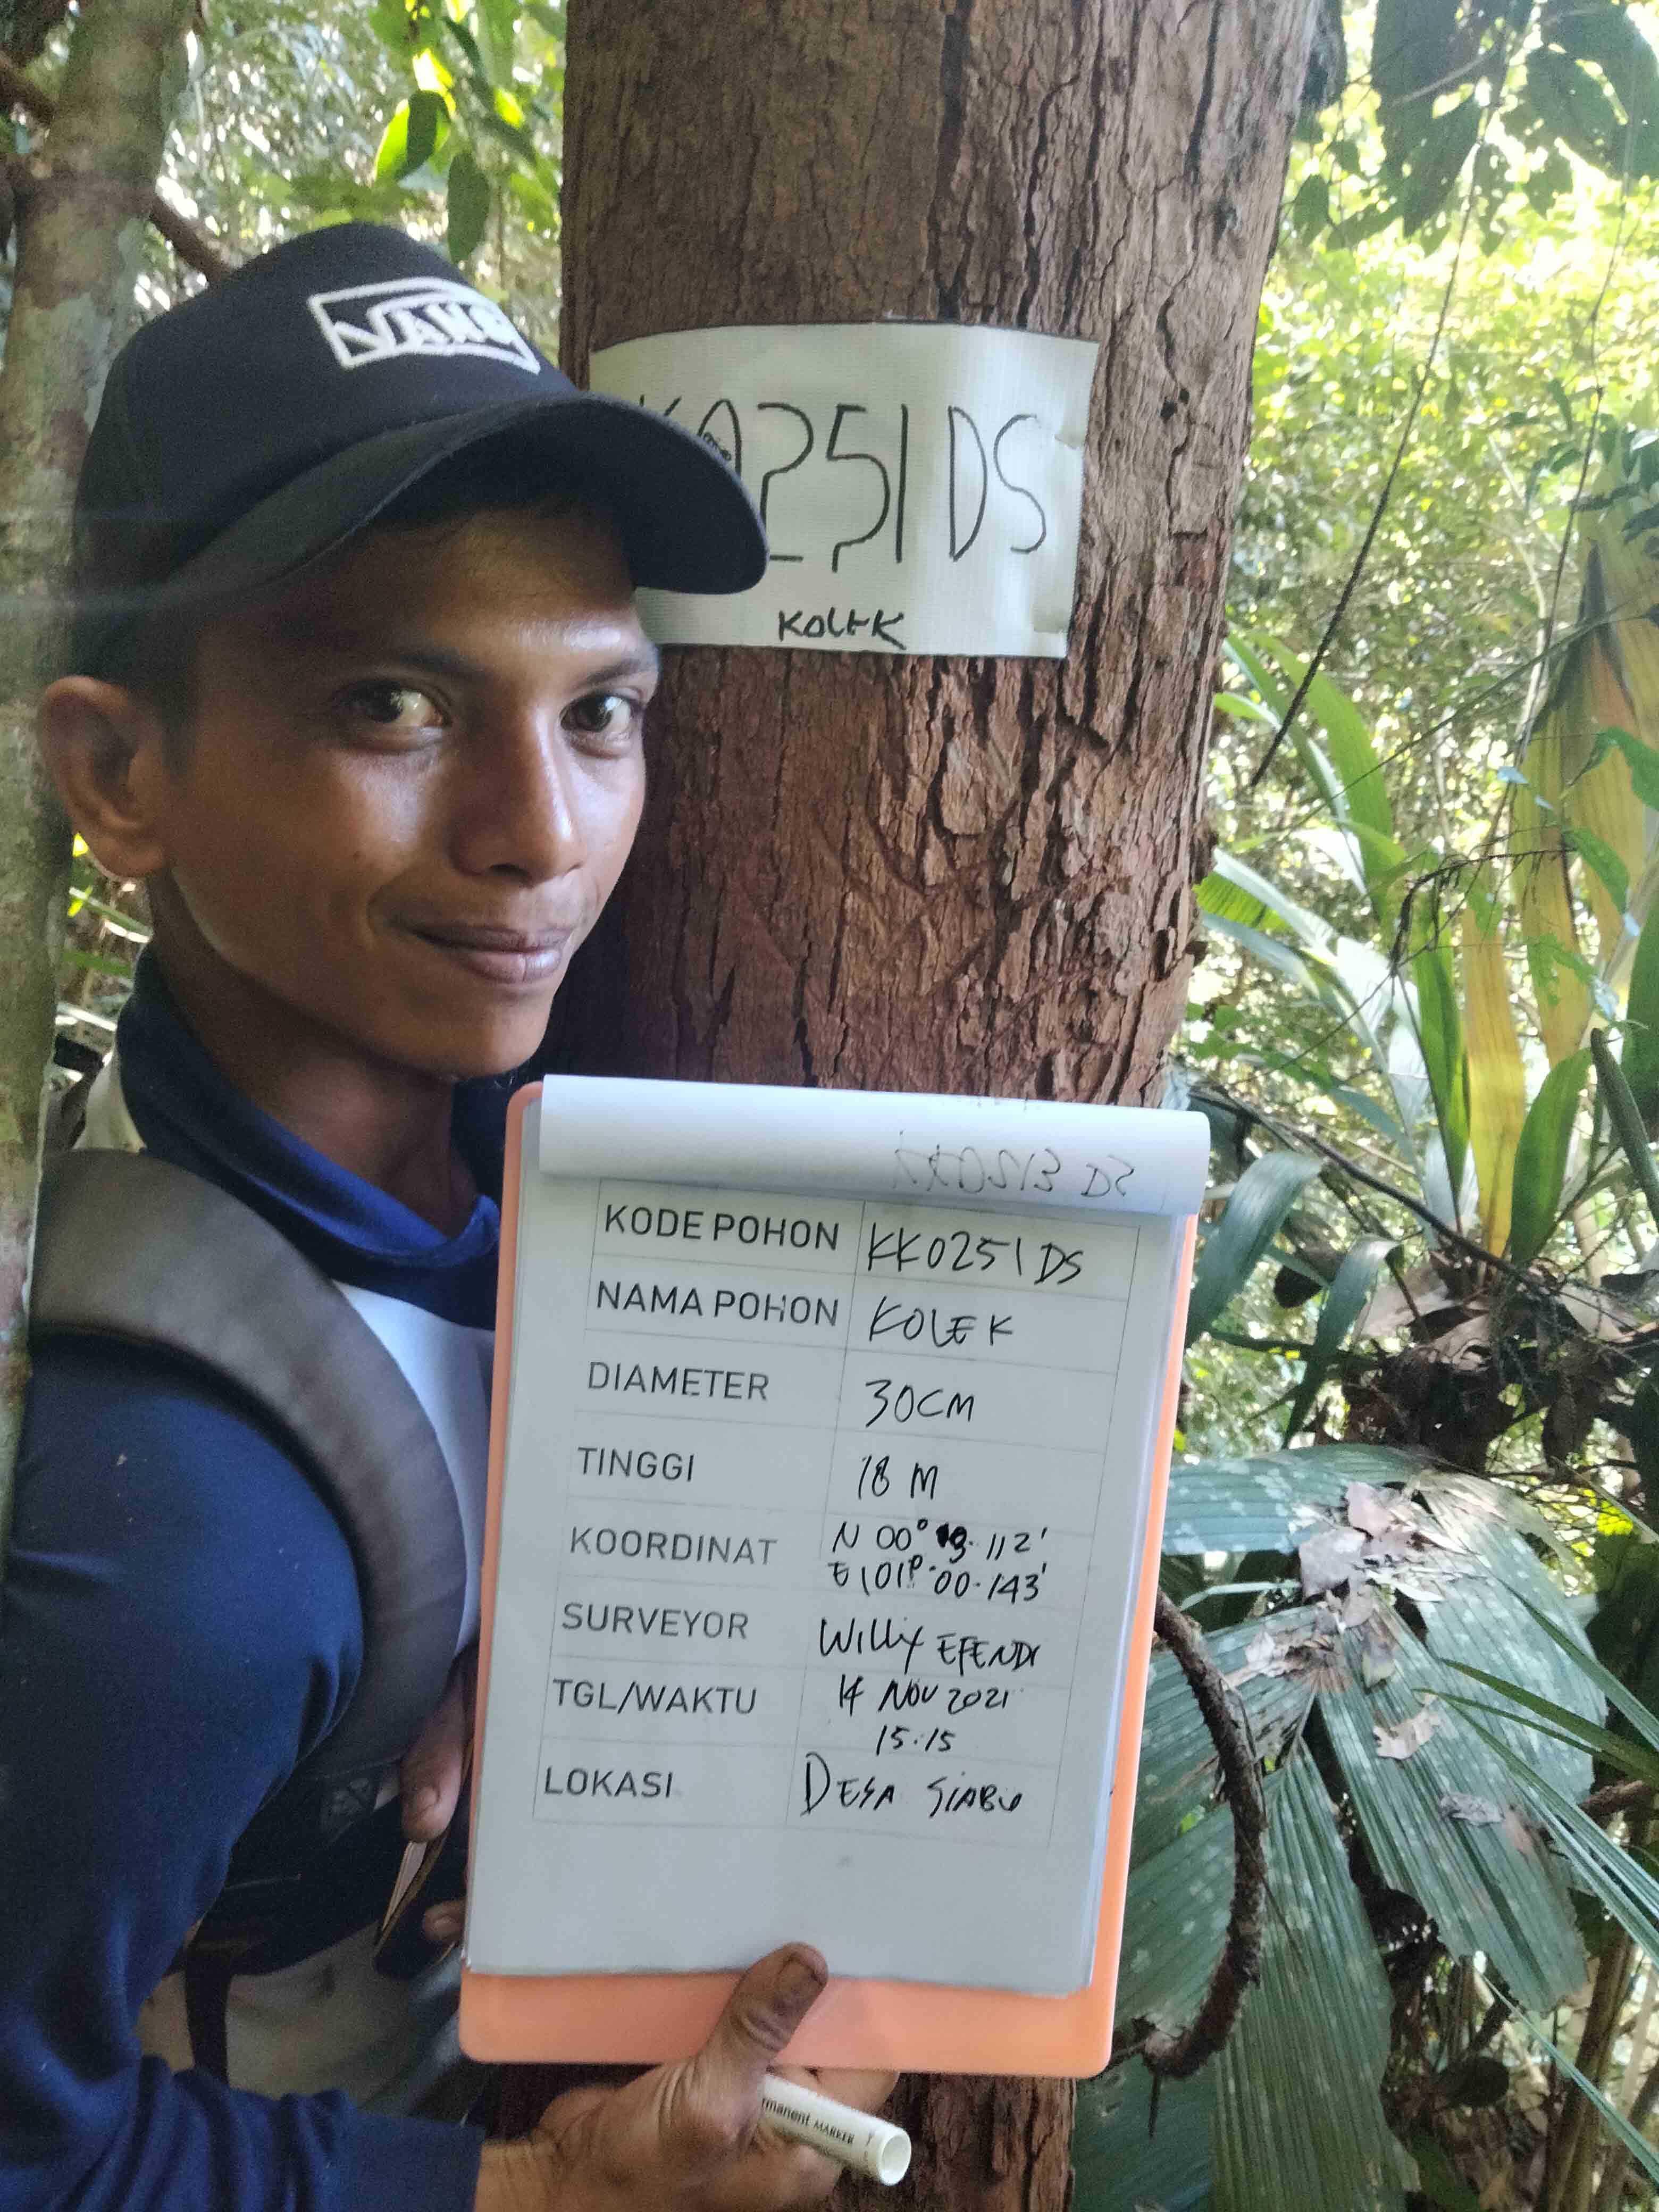 VANS
K0251DS
KOLEK
KODE POHON KK0251DS
NAMA POHON KOLEK
DIAMETER 30CM
TINGGI 18 M
KOORDINAT N 00° 112'
E101°.00.143'
SURVEYOR Willy EFENDI
TGL/WAKTU 14 NOV 2021
15.15
LOKASI DESA SIABU
rmanent MARKER